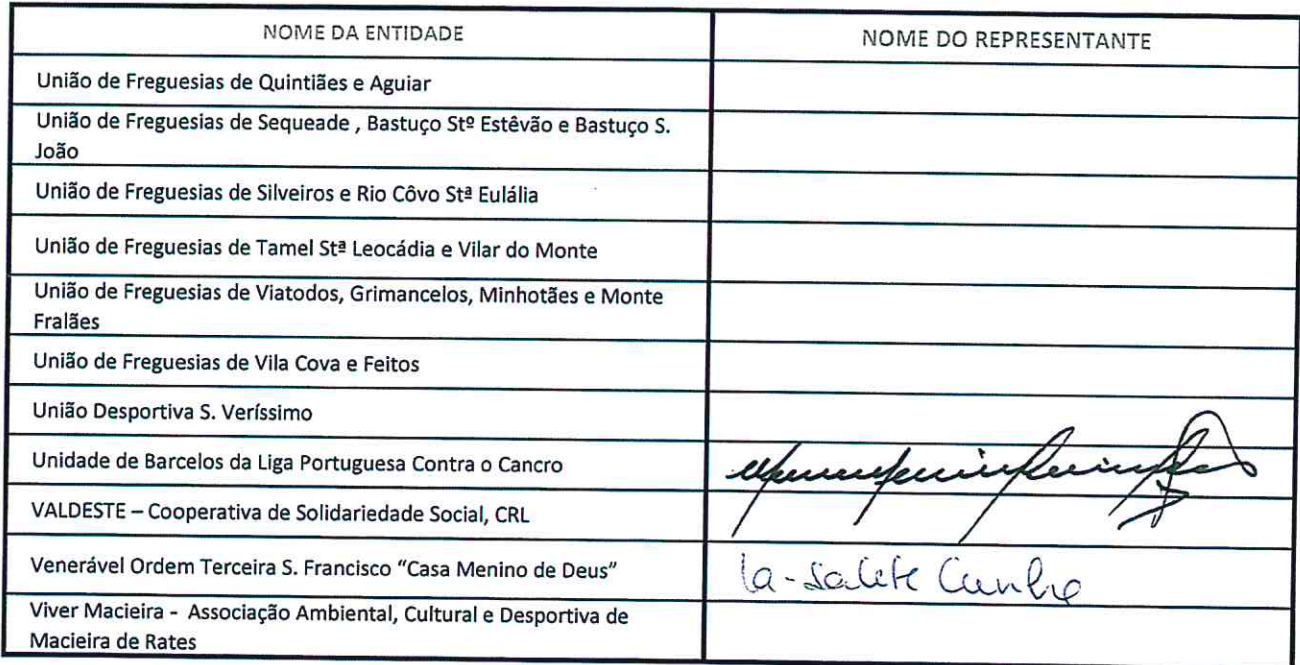 NOME DA ENTIDADE NOME DO REPRESENTANTE
União de Freguesias de Quintiães e Aguiar
União de Freguesias de Sequeade , Bastuço Stº Estêvão e Bastuço S.
João
União de Freguesias de Silveiros e Rio Côvo Stª Eulália
União de Freguesias de Tamel Stª Leocádia e Vilar do Monte
União de Freguesias de Viatodos, Grimancelos, Minhotães e Monte
Fralães
União de Freguesias de Vila Cova e Feitos
União Desportiva S. Veríssimo
Unidade de Barcelos da Liga Portuguesa Contra o Cancro
VALDESTE – Cooperativa de Solidariedade Social, CRL
Venerável Ordem Terceira S. Francisco "Casa Menino de Deus" la-Salete Cunha
Viver Macieira - Associação Ambiental, Cultural e Desportiva de
Macieira de Rates